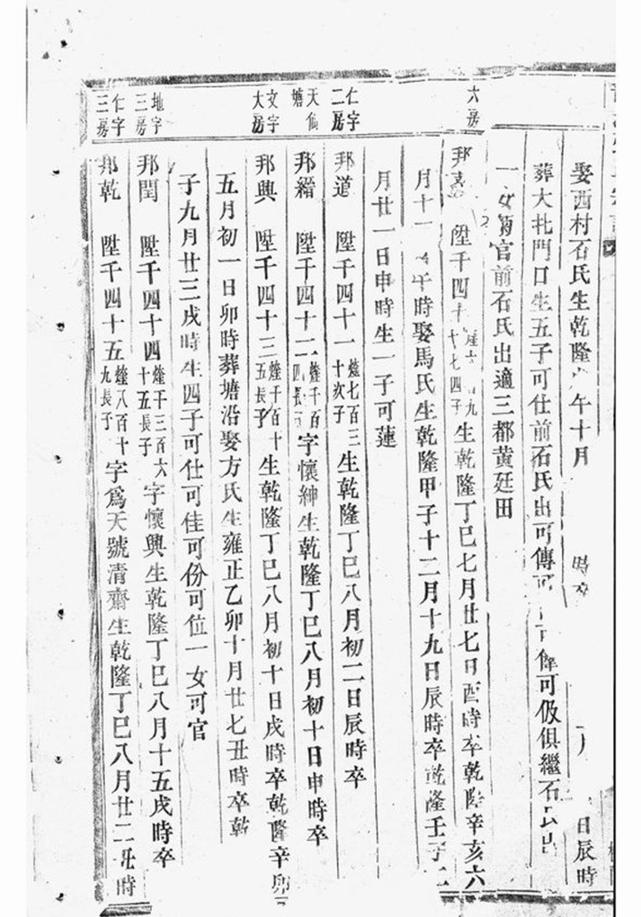 娶西村石氏生乾隆午十月 時卒 日辰時
葬大圠門口生五子可仕前石氏出可傳可 可侔可伋俱繼石氏出
一女可官前石氏出適三都黃廷田
六房
邦嘉 陞千四十 十七四子 生乾隆丁巳七月廿七日酉時卒乾隆辛亥六
月十 午時娶馬氏生乾隆甲子十二月十九日辰時卒乾隆壬子二
月廿一日申時生一子可蓮
仁字二房
邦道 陞千四十一 煃七百三十次子 生乾隆丁巳八月初二日辰時卒
天倫塘
邦縉 陞千四十二 煃千百四長子 字懷紳生乾隆丁巳八月初十日申時卒
文字大房
邦興 陞千四十三 煃千百十五長子 生乾隆丁巳八月初十日戌時卒乾隆辛卯
五月初一日卯時葬塘沿娶方氏生雍正乙卯十月廿七丑時卒乾
子九月廿三戌時生四子可仕可佳可份可位一女可官
地字三房
邦閏 陞千四十四 煃千三百六十五長子 字懷興生乾隆丁巳八月十五戌時卒
仁字三房
邦乾 陞千四十五 煃八百十九長子 字為天號清齋生乾隆丁巳八月廿二丑時